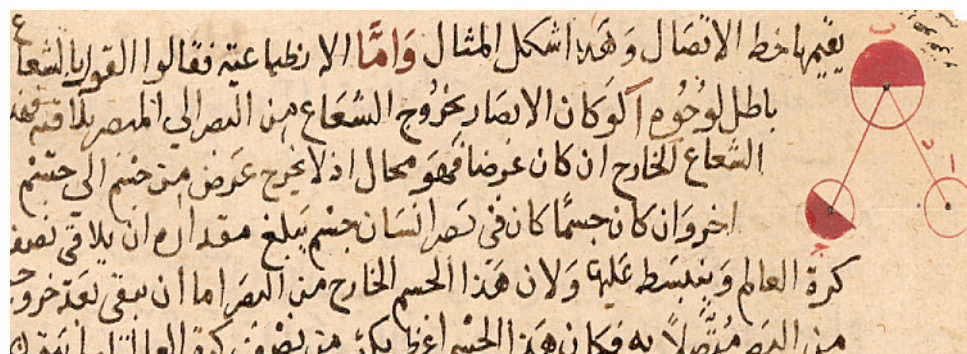 يقيمها خط الاتصال وهذا شكل المثال واما الانطباعية فقالوا القول بالشعاع
باطل لوجوه آ لو كان الابصار بخروج الشعاع من البصر الى المبصر
الشعاع الخارج ان كان عرضا فهو محال اذ لا يخرج عرض من جسم الى جسم
اخر وان كان جسما كان في بصر انسان جسم يبلغ مقداره ان يلاقي نصف
كرة العالم وينبسط عليها ولان هذا الجسم الخارج من البصر اما ان يبقى بعد خروجه
من البصر متصلا به فكان هذا الجسم من نصف كرة العالم
ب
ا
ج